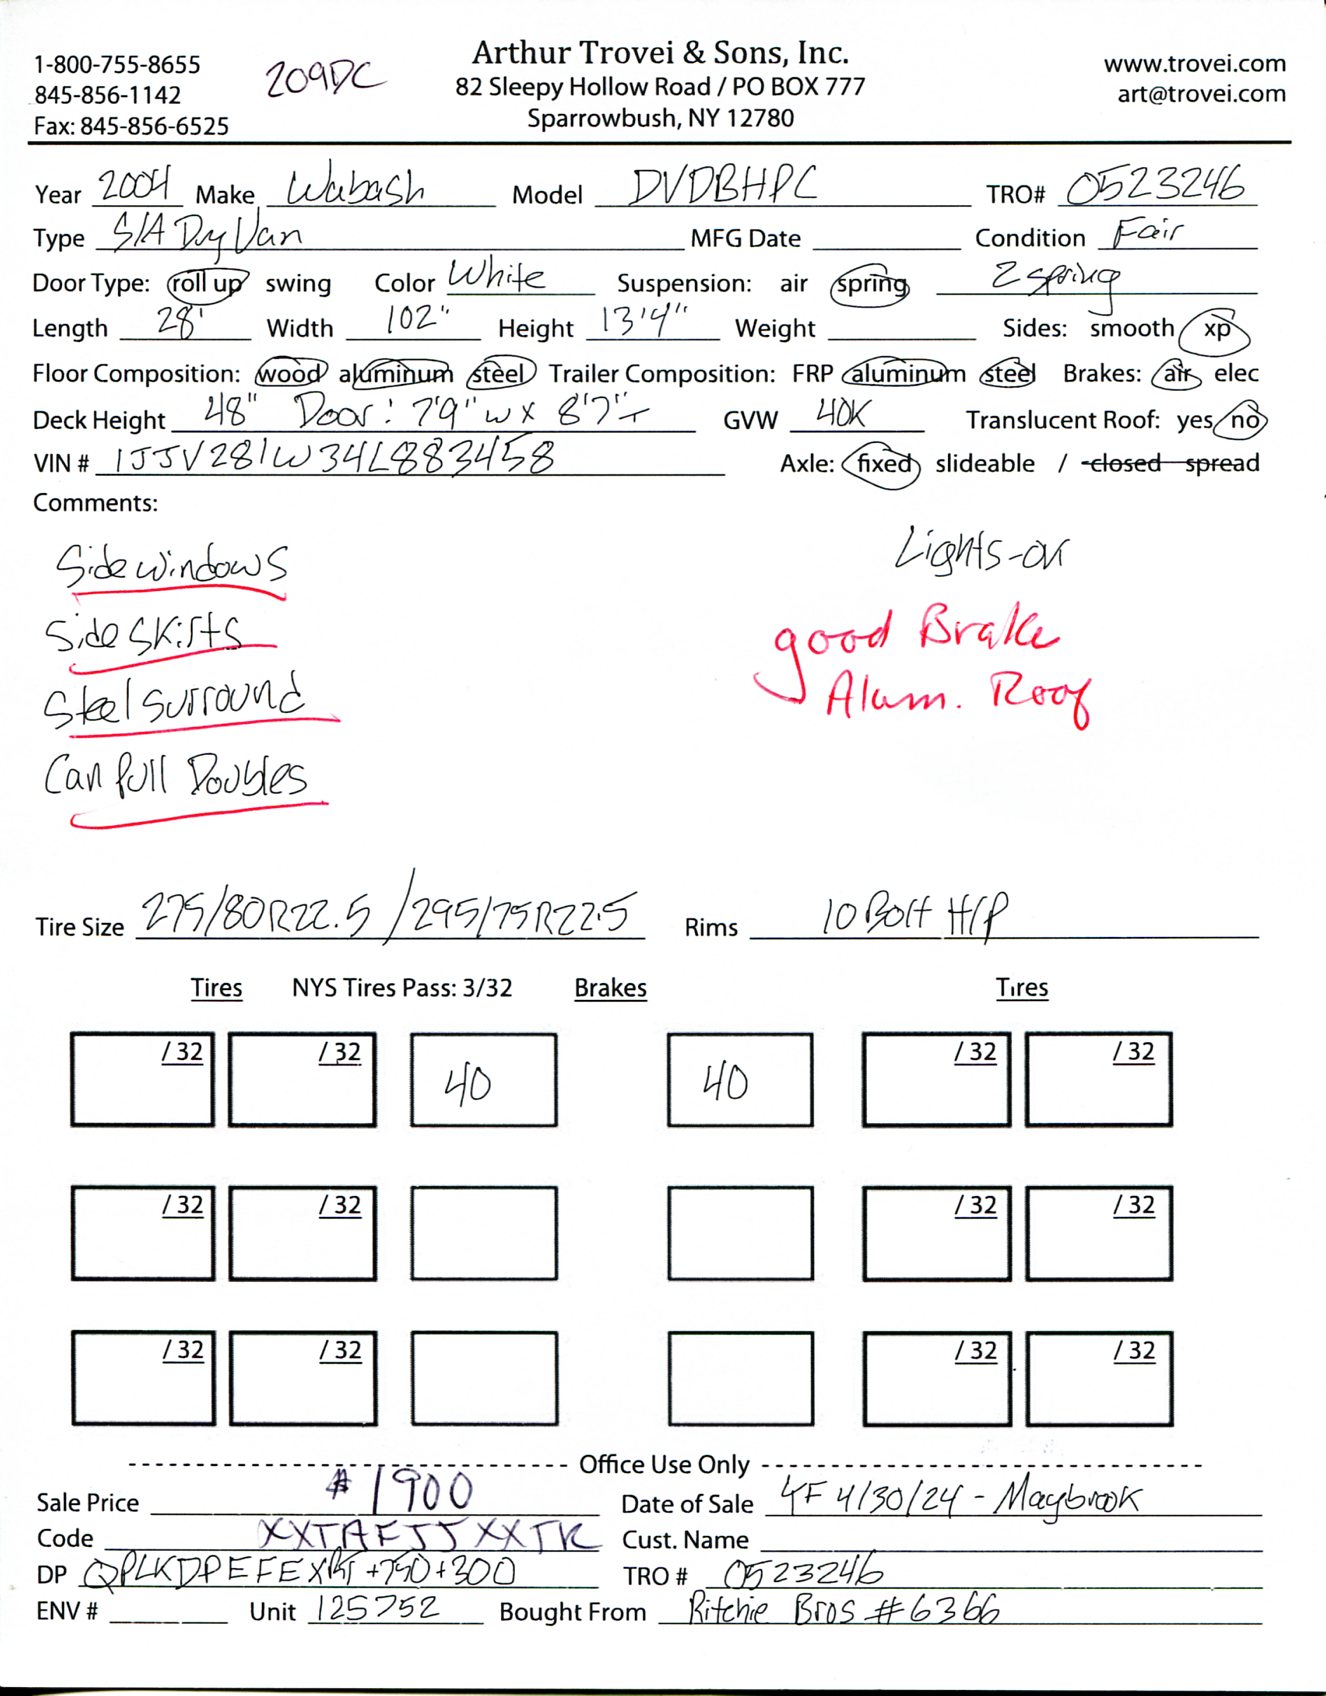 Arthur Trovei & Sons, Inc.
1-800-755-8655 209DC 82 Sleepy Hollow Road / PO BOX 777 www.trovei.com
845-856-1142 Sparrowbush, NY 12780 art@trovei.com
Fax: 845-856-6525
Year 2004 Make Wabash Model DVDBHPC TRO# 0523246
Type S/A Dry Van MFG Date Condition Fair
Door Type: roll up swing Color White Suspension: air spring 2 spring
Length 28' Width 102" Height 13'4" Weight Sides: smooth xp
Floor Composition: wood aluminum steel Trailer Composition: FRP aluminum steel Brakes: air elec
Deck Height 48" Door: 7'9" w x 8'7" T GVW 40K Translucent Roof: yes no
VIN # 1JJV281W34L883458 Axle: fixed slideable / closed spread
Comments:
Side windows Lights-on
Side Skirts good Brake
Steel surround Alum. Roof
Can pull Doubles
Tire Size 275/80R22.5 / 295/75R22.5 Rims 10 Bolt H/P
Tires NYS Tires Pass: 3/32 Brakes Tires
/ 32 / 32 40 40 / 32 / 32
/ 32 / 32 / 32 / 32
/ 32 / 32 / 32 / 32
Office Use Only
Sale Price $1900 Date of Sale YF 4/30/24 - Maybrook
Code XXTAFJJXXTK Cust. Name
DP +750+300 TRO # 0523246
ENV # Unit 125752 Bought From Ritchie Bros #6366